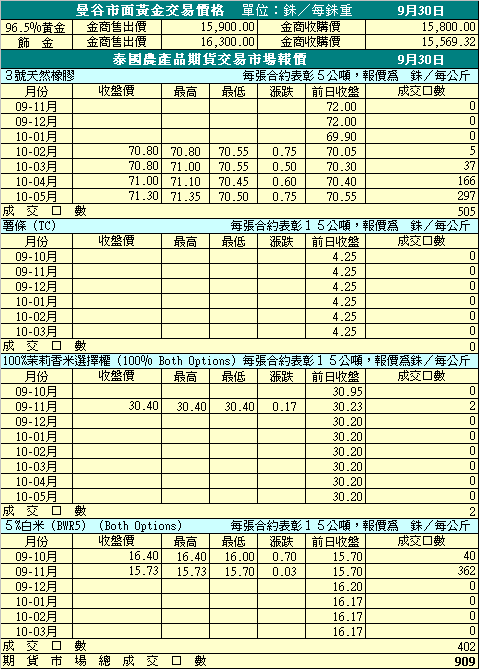 曼谷市面黃金交易價格 單位：銖／每銖重 9月30日
96.5%黃金 金商售出價 15,900.00 金商收購價 15,800.00
飾 金 金商售出價 16,300.00 金商收購價 15,569.32
泰國農產品期貨交易市場報價 9月30日
３號天然橡膠 每張合約表彰５公噸，報價爲 銖／每公斤
月份 收盤價 最高 最低 漲跌 前日收盤 成交口數
09-11月 72.00 0
09-12月 72.00 0
10-01月 69.90 0
10-02月 70.80 70.80 70.55 0.75 70.05 5
10-03月 70.80 71.00 70.55 0.50 70.30 37
10-04月 71.00 71.10 70.45 0.60 70.40 166
10-05月 71.30 71.35 70.50 0.75 70.55 297
成 交 口 數 505
薯條 (TC) 每張合約表彰１５公噸，報價爲 銖／每公斤
月份 收盤價 最高 最低 漲跌 前日收盤 成交口數
09-10月 4.25 0
09-11月 4.25 0
09-12月 4.25 0
10-01月 4.25 0
10-02月 4.25 0
10-03月 4.25 0
成 交 口 數 0
100%茉莉香米選擇權 (100% Both Options) 每張合約表彰１５公噸，報價爲銖／每公斤
月份 收盤價 最高 最低 漲跌 前日收盤 成交口數
09-10月 30.95 0
09-11月 30.40 30.40 30.40 0.17 30.23 2
09-12月 30.20 0
10-01月 30.20 0
10-02月 30.20 0
10-03月 30.20 0
10-04月 30.20 0
10-05月 30.20 0
成 交 口 數 2
５%白米 (BWR5) (Both Options) 每張合約表彰１５公噸，報價爲 銖／每公斤
月份 收盤價 最高 最低 漲跌 前日收盤 成交口數
09-10月 16.40 16.40 16.00 0.70 15.70 40
09-11月 15.73 15.73 15.70 0.03 15.70 362
09-12月 16.20 0
10-01月 16.17 0
10-02月 16.17 0
10-03月 16.17 0
成 交 口 數 402
期 貨 市 場 總 成 交 口 數 909